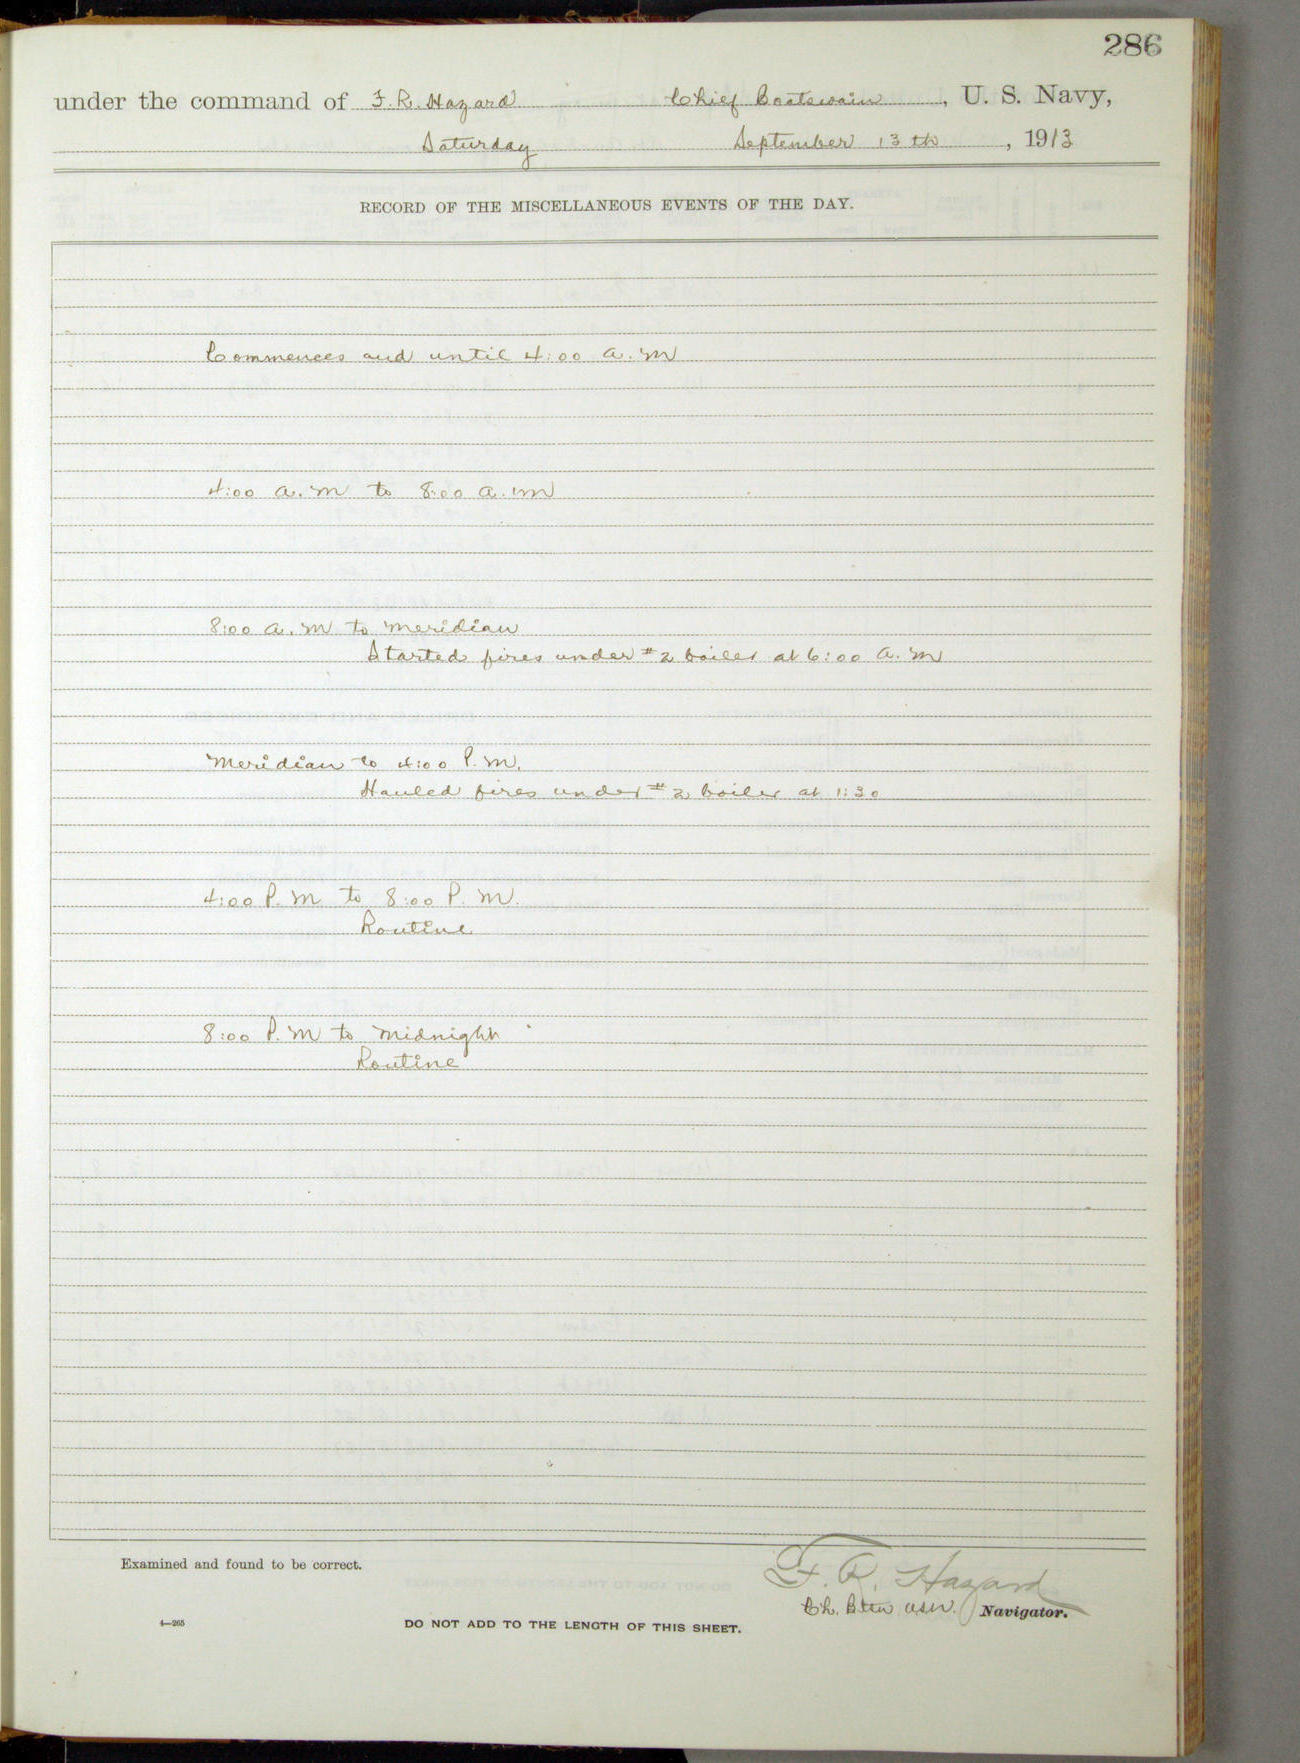 286
under the command of F. R. Hazard Chief Boatswain, U. S. Navy,
Saturday September 13th, 1913
RECORD OF THE MISCELLANEOUS EVENTS OF THE DAY.
Commences and until 4:00 a.m
4:00 a.m to 8:00 a.m
8:00 a.m to meridian
Started fires under #2 boiler at 6:00 a.m
Meridian to 4:00 P.m.
Hauled fires under #2 boiler at 1:30
4:00 P.m to 8:00 P.m.
Routine
8:00 P.m to midnight
Routine
Examined and found to be correct.
F. R. Hazard
Ch. Btsn USN. Navigator.
4—265
DO NOT ADD TO THE LENGTH OF THIS SHEET.